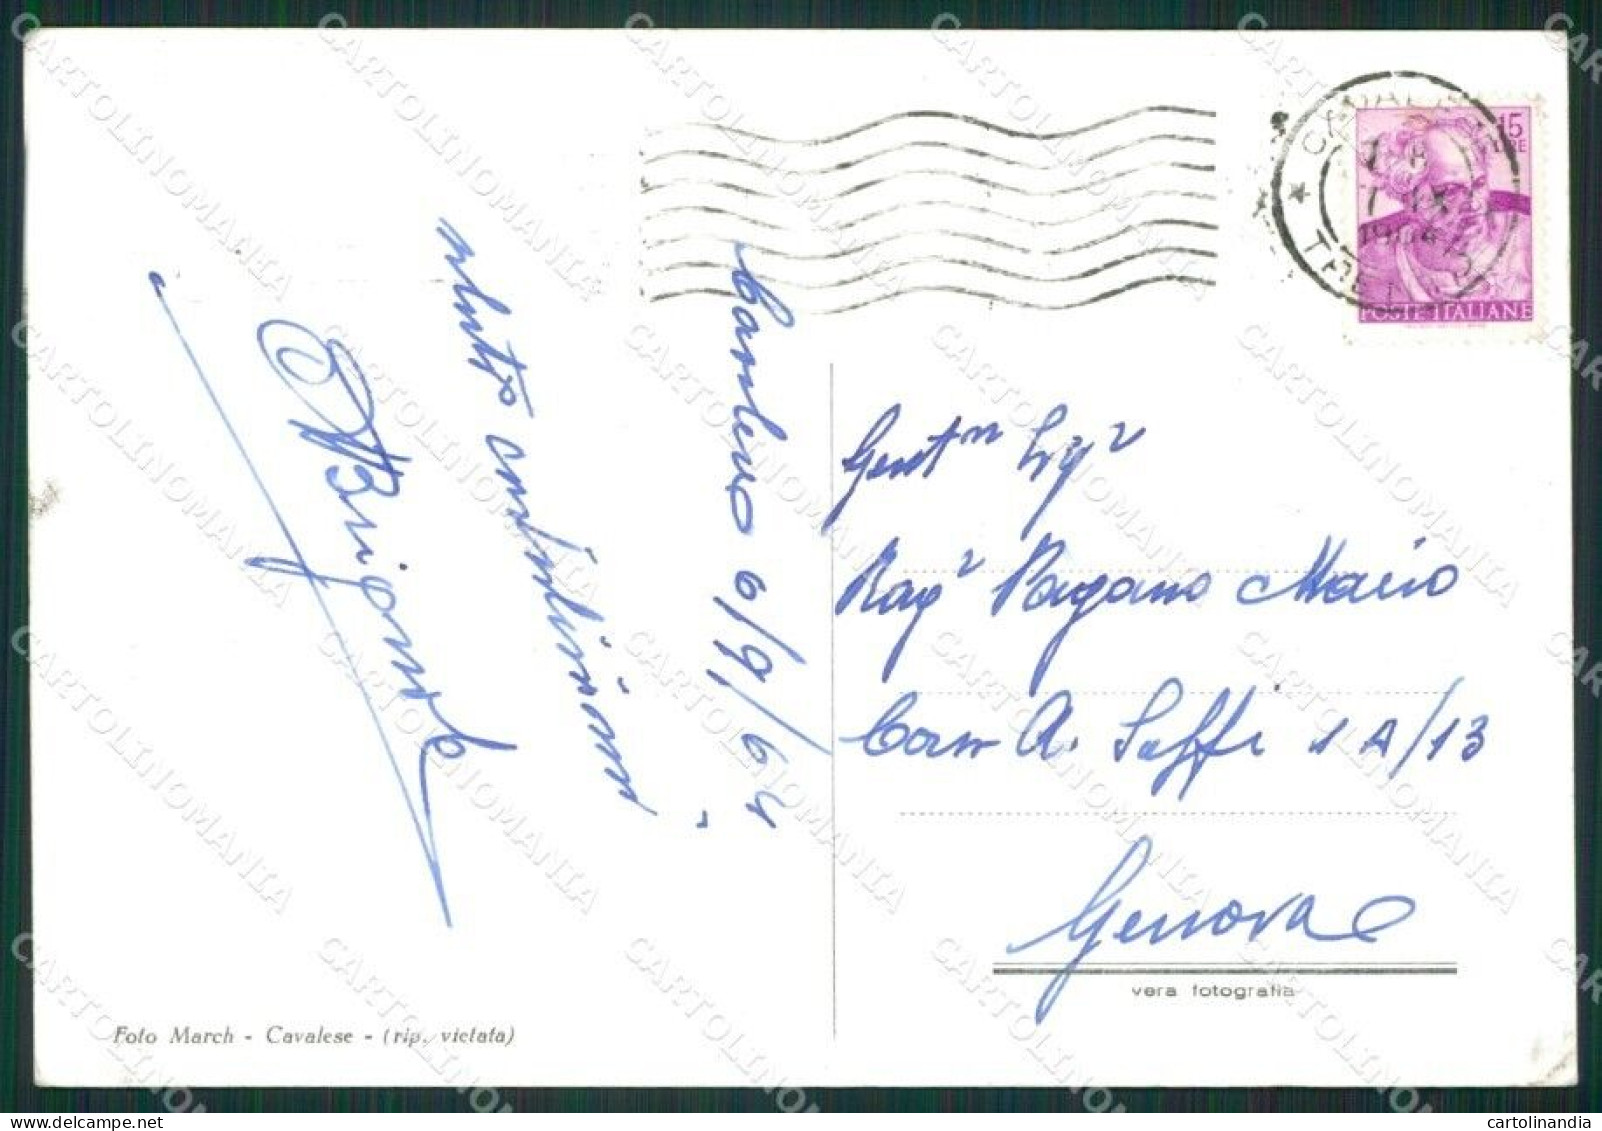 15
LIRE
1964
POSTE ITALIANE
Cavalese 6/9/64
saluto cordialissimi
Brigonde
Gent.mo Sig.r
Rag.r Pagano Mario
Corso A. Saffi 1A/13
Genova
vera fotografia
Foto March - Cavalese - (rip. vietata)
CARTOLINOMANIA
cartolinandia